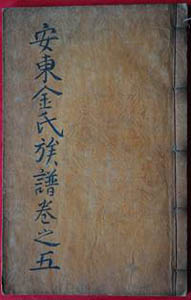 安東金氏族譜卷之五